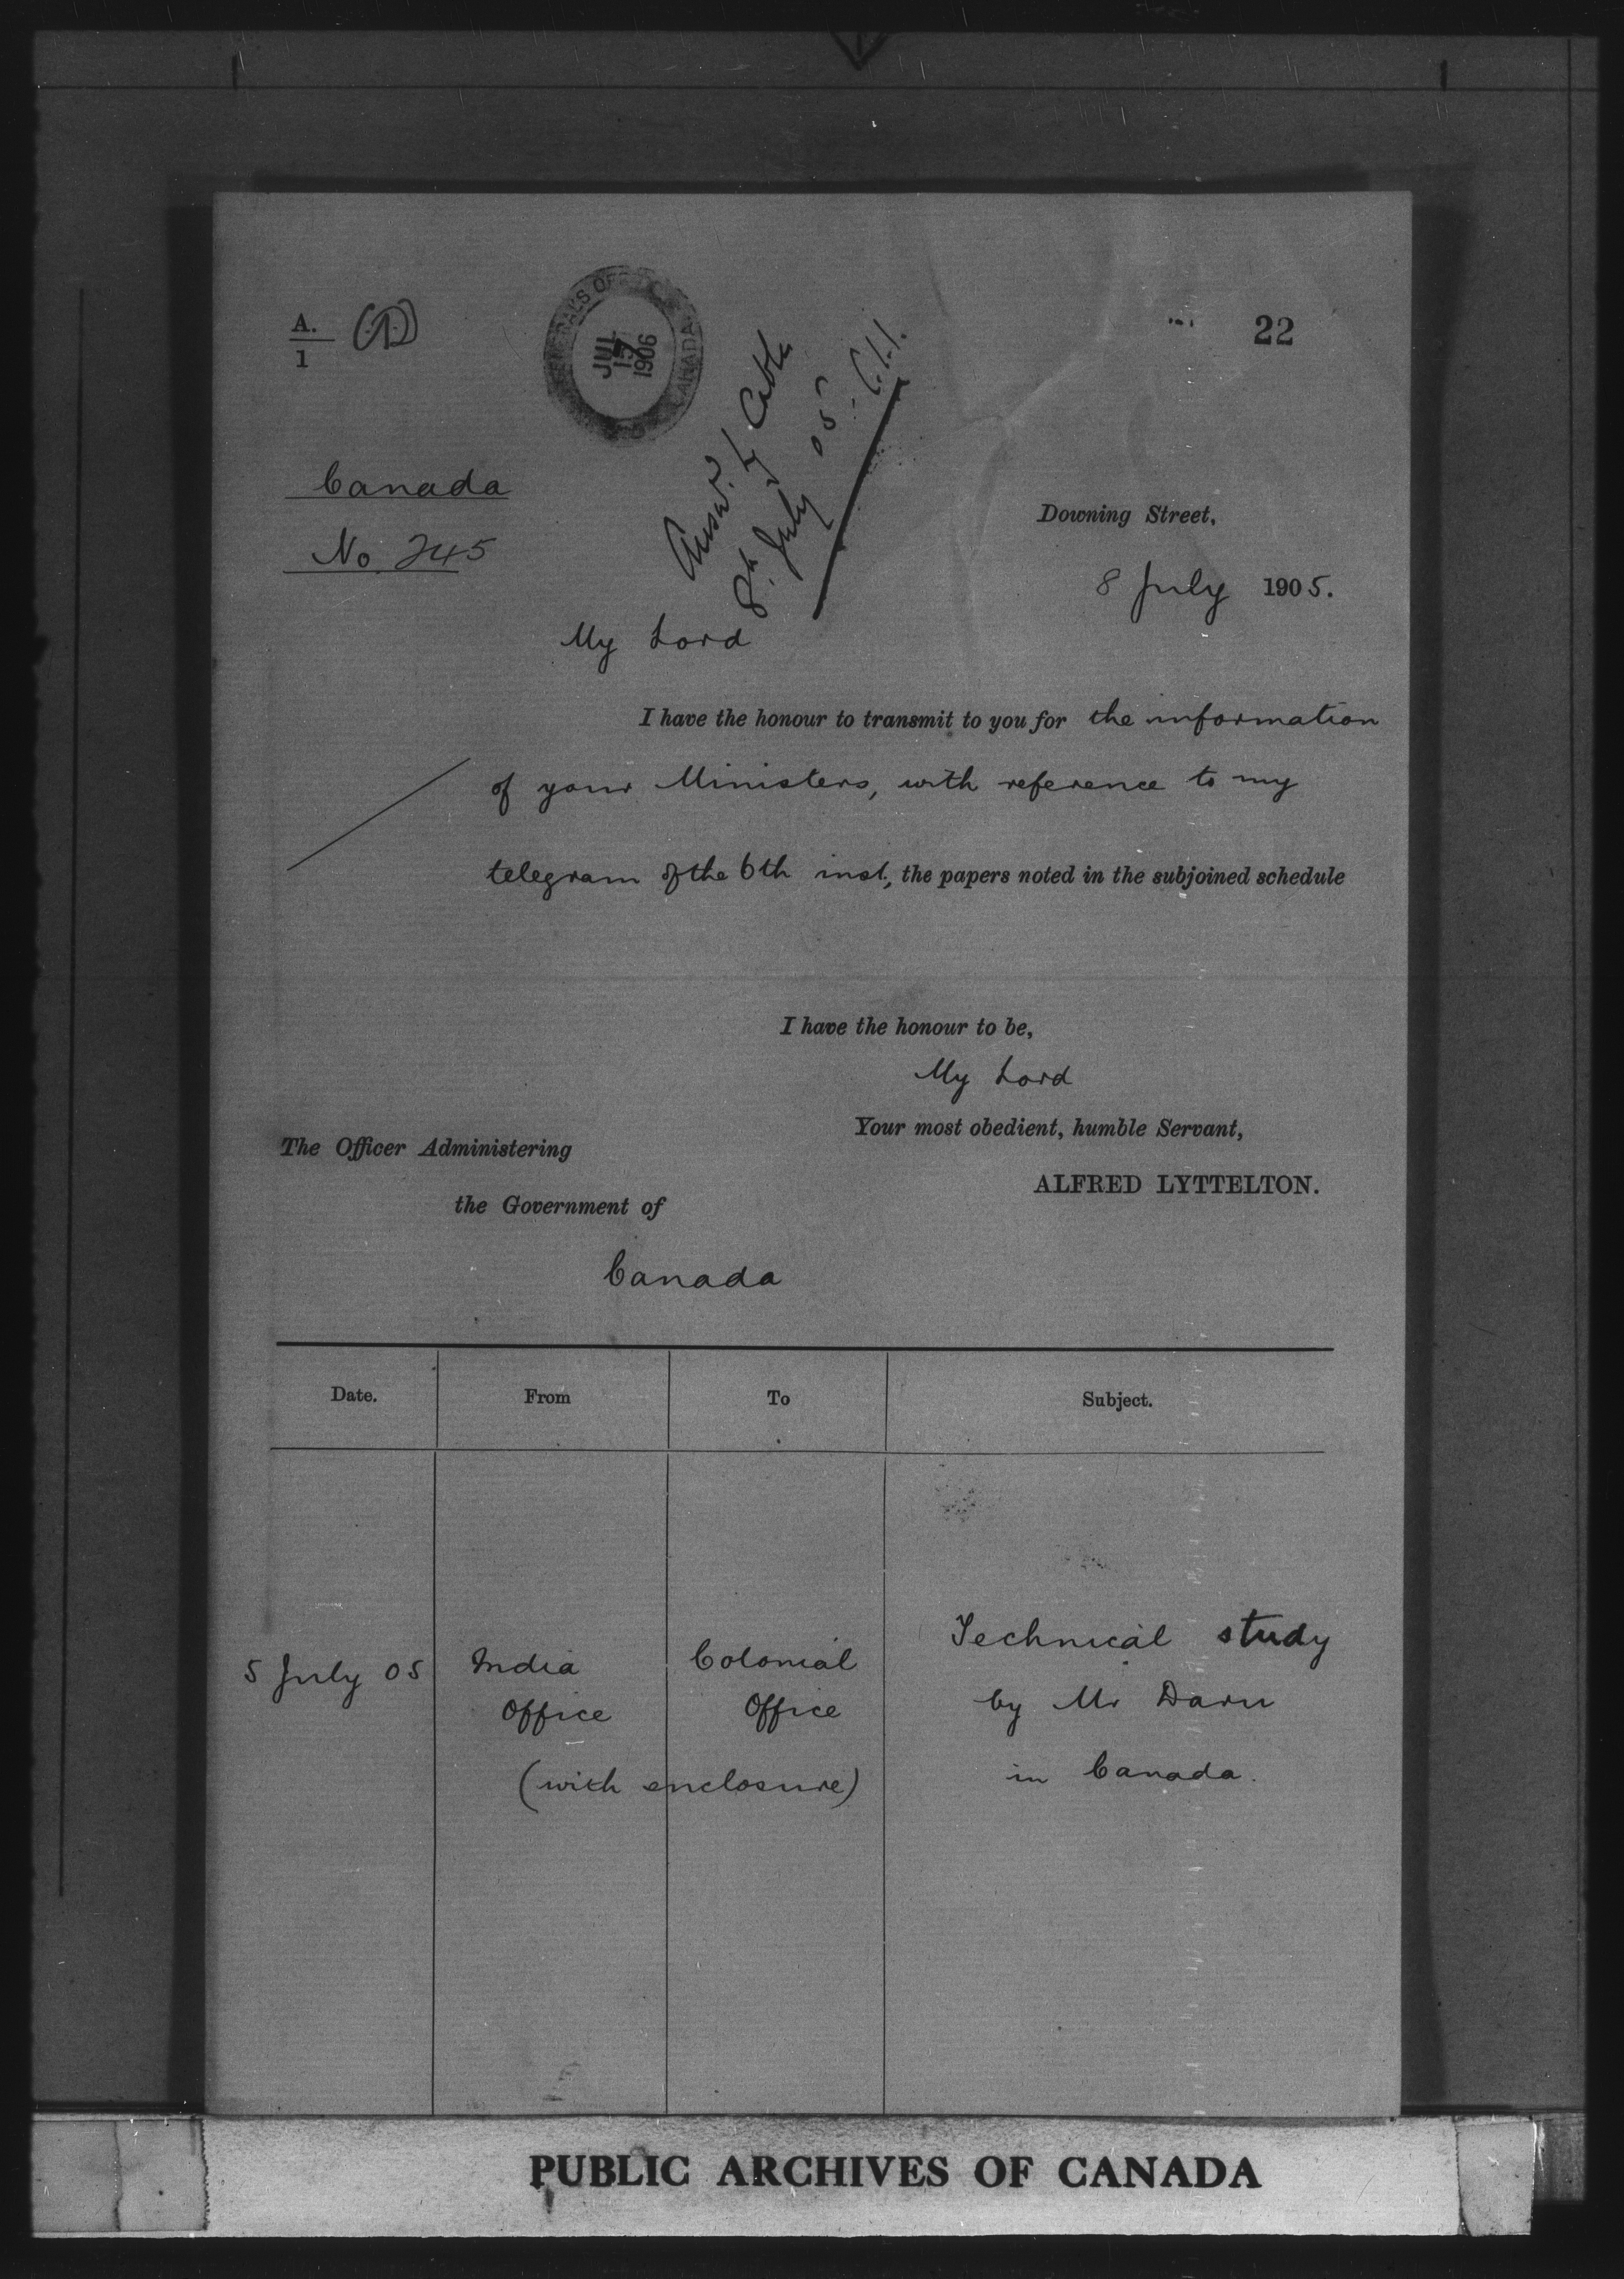 A.
1
(D)
JUL
17
1906
CANADA
22
Answd. by Cable
8th. July 05.
Canada
No. 245
Downing Street,
8 July 1905.
My Lord
I have the honour to transmit to you for the information
of your Ministers, with reference to my
telegram of the 6th inst., the papers noted in the subjoined schedule
I have the honour to be,
My Lord
Your most obedient, humble Servant,
ALFRED LYTTELTON.
The Officer Administering
the Government of
Canada
Date. From To Subject.
5 July 05 India Office Colonial Office Technical study
by Mr Daru
in Canada.
(with enclosure)
PUBLIC ARCHIVES OF CANADA